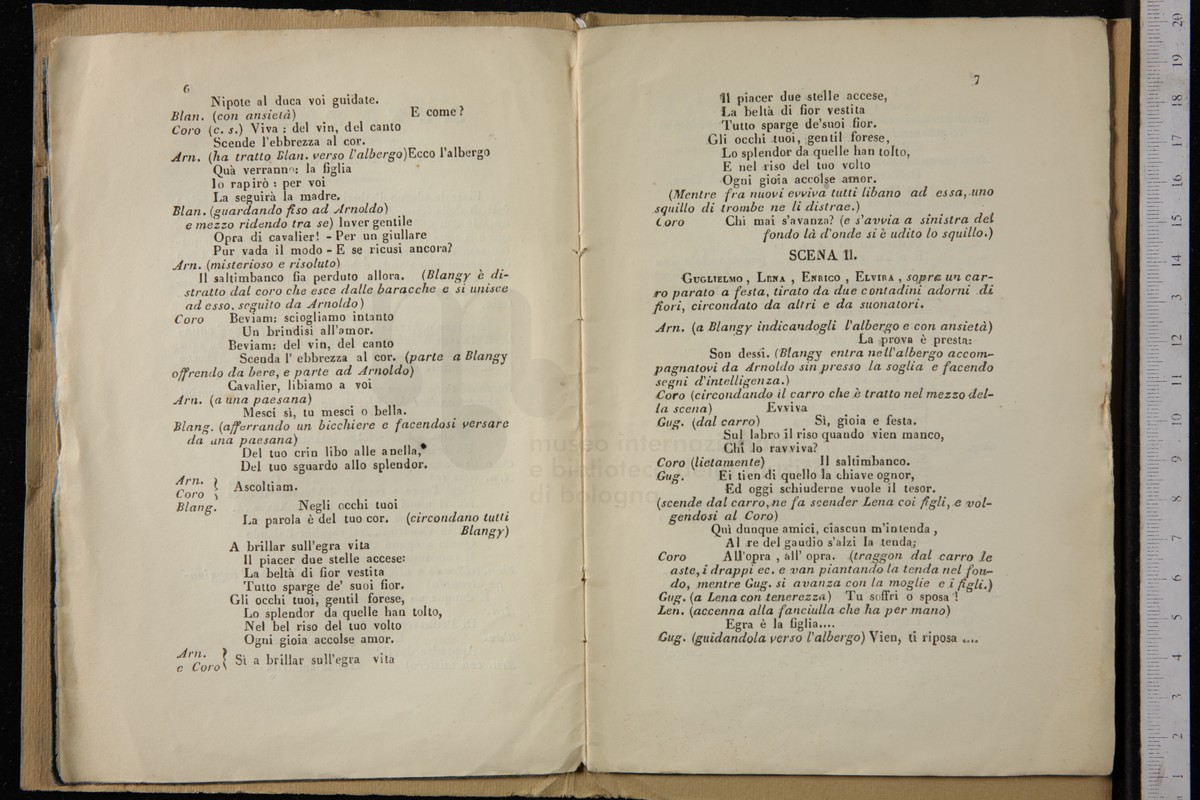 6
Nipote al duca voi guidate.
Blan. (con ansietà) E come?
Coro (c. s.) Viva : del vin, del canto
Scende l'ebbrezza al cor.
Arn. (ha tratto Blan. verso l'albergo)Ecco l'albergo
Quà verranno: la figlia
Io rapirò : per voi
La seguirà la madre.
Blan. (guardando fiso ad Arnoldo)
e mezzo ridendo tra se) Inver gentile
Opra di cavalier! - Per un giullare
Pur vada il modo - E se ricusi ancora?
Arn. (misterioso e risoluto)
Il saltimbanco fia perduto allora. (Blangy è di-
stratto dal coro che esce dalle baracche e si unisce
ad esso, seguito da Arnoldo)
Coro Beviam: sciogliamo intanto
Un brindisi all'amor.
Beviam: del vin, del canto
Scenda l' ebbrezza al cor. (parte a Blangy
offrendo da bere, e parte ad Arnoldo)
Cavalier, libiamo a voi
Arn. (a una paesana)
Mesci sì, tu mesci o bella.
Blang. (afferrando un bicchiere e facendosi versare
da una paesana)
Del tuo crin libo alle anella,
Del tuo sguardo allo splendor.
Arn. }
Coro } Ascoltiam.
Blang. Negli occhi tuoi
La parola è del tuo cor. (circondano tutti
Blangy)
A brillar sull'egra vita
Il piacer due stelle accese:
La beltà di fior vestita
Tutto sparge de' suoi fior.
Gli occhi tuoi, gentil forese,
Lo splendor da quelle han tolto,
Nel bel riso del tuo volto
Ogni gioia accolse amor.
Arn. }
e Coro } Sì a brillar sull'egra vita
7
Il piacer due stelle accese,
La beltà di fior vestita
Tutto sparge de'suoi fior.
Gli occhi tuoi, gentil forese,
Lo splendor da quelle han tolto,
E nel riso del tuo volto
Ogni gioia accolse amor.
(Mentre fra nuovi evviva tutti libano ad essa, uno
squillo di trombe ne li distrae.)
Coro Chi mai s'avanza? (e s'avvia a sinistra del
fondo là d'onde si è udito lo squillo.)
SCENA II.
Guglielmo , Lena , Enrico , Elvira , sopra un car-
ro parato a festa, tirato da due contadini adorni di
fiori, circondato da altri e da suonatori.
Arn. (a Blangy indicandogli l'albergo e con ansietà)
La prova è presta:
Son dessi. (Blangy entra nell'albergo accom-
pagnatovi da Arnoldo sin presso la soglia e facendo
segni d'intelligenza.)
Coro (circondando il carro che è tratto nel mezzo del-
la scena) Evviva
Gug. (dal carro) Sì, gioia e festa.
Sul labro il riso quando vien manco,
Chi lo ravviva?
Coro (lietamente) Il saltimbanco.
Gug. Ei tien di quello la chiave ognor,
Ed oggi schiuderne vuole il tesor.
(scende dal carro, ne fa scender Lena coi figli, e vol-
gendosi al Coro)
Quì dunque amici, ciascun m'intenda ,
Al re del gaudio s'alzi la tenda;
Coro All'opra , all' opra. (traggon dal carro le
aste, i drappi ec. e van piantando la tenda nel fon-
do, mentre Gug. si avanza con la moglie e i figli.)
Gug. (a Lena con tenerezza) Tu soffri o sposa !
Len. (accenna alla fanciulla che ha per mano)
Egra è la figlia....
Gug. (guidandola verso l'albergo) Vien, ti riposa ....